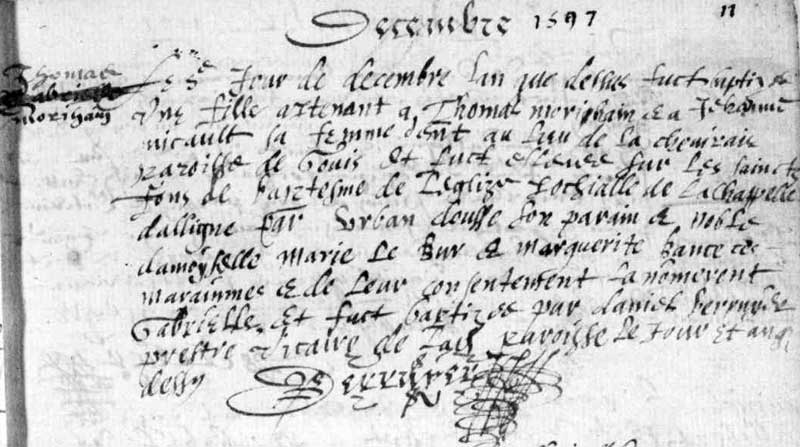 Decembre 1597
11
Thomas
Gabrielle
morighain
Le 8e Jour de decembre lan que dessus fuct baptizee
Une fille artenant a Thomas morighain & a Jehanne
nicault sa femme dent au lieu de la
paroisse de Gouis Et fuct eslevee sur les sainctz
fons de baptesme de Leglize de Lachappelle
dalligne par Urban dousse son parain & noble
damoyselle marie le & marguerite
marainnes & de leur consentement la nomerent
Gabrielle Et fuct baptizee par daniel
prestre vicaire de paroisse le Jour et an
dessus